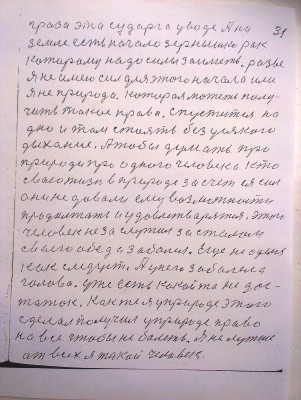 31
граза эта сударга уводе А на
земле есть начало зернышко рак
которому надо силы заиметь. разве
я не имею сил для этого начала или
я не природа. Которая может полу-
чить такое права. Спустится на
дно и там стоять без уля кого
дыхание. А чтобы думать про
природы про одного человека кто
сваю жизь в природе за счет ея сил
они не довали ему возможности
продолжать и удовлетварятся. Этот
человек не заслужил за сталом
сваего обеда заболел. Еще не оделся
как следует. А у него заболела
голова. уже есть какой та не дос-
таток. Как же я у природе этого
сделал получил у природе право
на все чтобы не балеть. Я не лутше
от всех я такой человек.